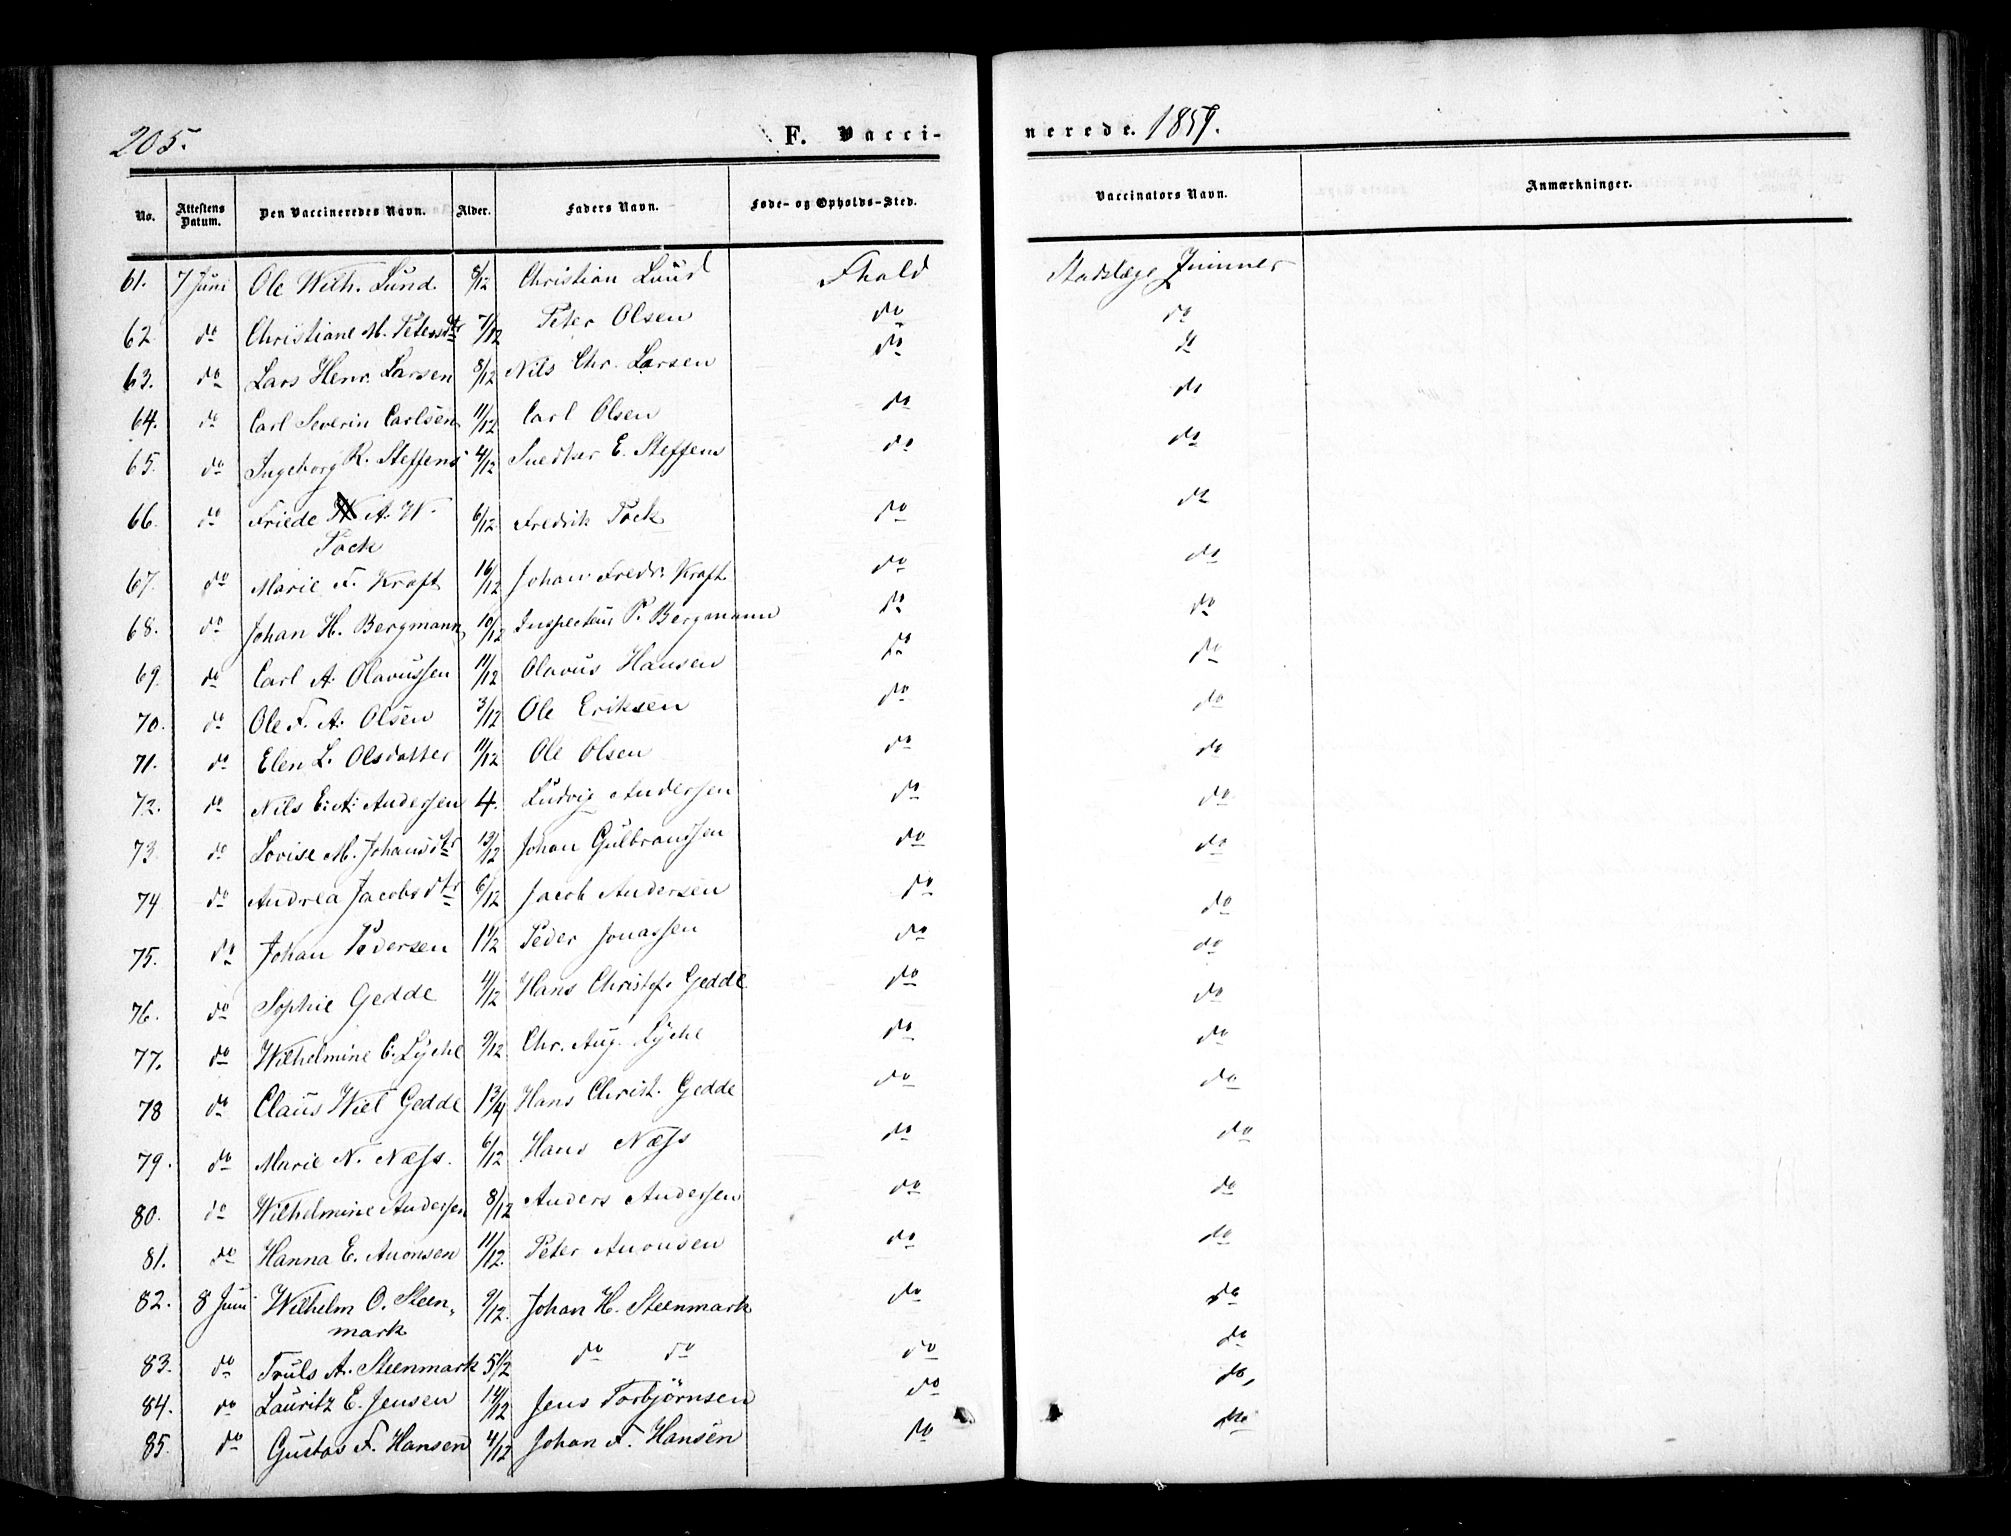 205.
F. Vacci-
nerede. 1859.
No. Attestens Datum. Den Vaccineredes Navn. Alder. Faders Navn. Føde- og Opholds-Sted. Vaccinators Navn. Anmærkninger.
61. 7 Juni Ole Wilh. Lund. 8/12 Christian Lund Fhald Stadslæge
62. do Christiane M. Petersdtr 7/12 Peter Olsen do do
63. do Lars Henr. Larsen 8/12 Nils Chr. Larsen do do
64. do Carl Severin Carlsen 11/12 Carl Olsen do do
65. do Ingeborg R. Steffens 4/12 E. Steffens do do
66. do Friede A. W. 6/12 Fredrik Tock do do
Tock
67. do Marie F. Kraft 16/12 Johan Fredr. Kraft do do
68. do Johan H. Bergmann 10/12 Inspecteur P. Bergmann do do
69. do Carl A. Olavussen 11/12 Olavus Hansen do do
70. do Ole F. A. Olsen 3/12 Ole Eriksen do do
71. do Elen L. Olsdatter 11/12 Ole Olsen do do
72. do Nils E. A. Anderssen 4. Ludvig Anderssen do do
73. do Lovise M. Johansdtr 13/12 Johan Gulbranssen do do
74 do Andrea Jacobsdtr 6/12 Jacob Andersen do do
75. do Johan Pedersen 1 1/2 Peder Jonassen do do
76. do Sophie Gedde 4/12 Hans Christof. Gedde do do
77. do Wilhelmine C. Lyche 9/12 Chr. Aug. Lyche do do
78 do Claus Wiel Gedde 1 3/4 Hans Christ. Gedde do do
79. do Marie N. Næss. 6/12 Hans Næss do do
80. do Wilhelmine Anderssen 8/12 Anders Anderssen do do
81. do Hanna E. Auonsen 11/12. Peter Auonsen do do
82. 8 Juni Wilhelm O. Steen- 9/12. Johan H. Steenmark do do
mark
83. do Truls A. Steenmark 5 1/2 do do do do
84. do Lauritz E. Jensen 14/12 Jens Torbjørnsen do do,
85. do Gustav F. Hansen 4/12 Johan F. Hansen do do